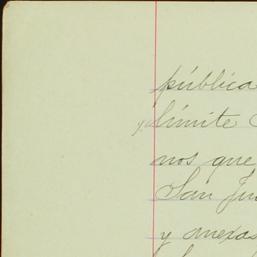 pública
límite
nos que
San Ju
y anexas